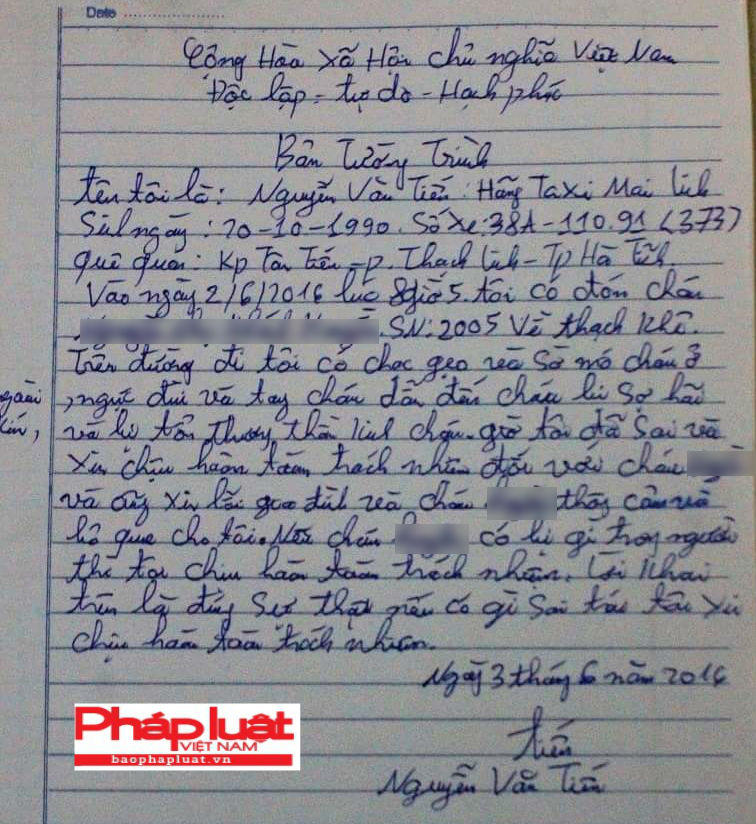 Date
Cộng Hòa Xã Hội chủ nghĩa Việt Nam
Độc lập - tự do - Hạch phúc
Bản Tường Trình
tên tôi là: Nguyễn Văn Tiến: Hãng Taxi Mai Lich
Sinh ngày: 20-10-1990. Số Xe: 38A-110.91 (373)
quê quán: Kp Tân Tiến - p. Thạch Lich - Tp Hà Tĩnh.
Vào ngày 2/6/2016 lúc 8giờ5. tôi có đón cháu
SN: 2005 Về thạch Khê.
trên đường đi tôi có chọc gẹo và Sờ mó cháu ở
ngực đùi và tay cháu dẫn đến cháu bị Sợ hãi
và bị tổn thương thần kinh cháu. giờ tôi đã Sai và
Xin chịu hoàn toàn trách nhiệm đối với cháu
và cũng xin lỗi gia đình và cháu thông cảm và
bỏ qua cho tôi. Nếu cháu có bị gì trong người
thì tôi chịu hoàn toàn trách nhiệm. Lời Khai
trên là đúng Sự thật nếu có gì Sai trái tôi Xin
chịu hoàn toàn trách nhiệm.
Ngày 3 tháng 6 năm 2016
tiến
Nguyễn Văn Tiến
Pháp luật
VIỆT NAM
baophapluat.vn